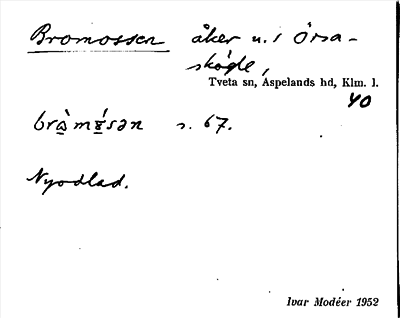 Bromossen åker u. i Örsa-
skögle,
Tveta sn, Aspelands hd, Klm. l.
40
s. 67.
Nyodlad.
Ivar Modéer 1952